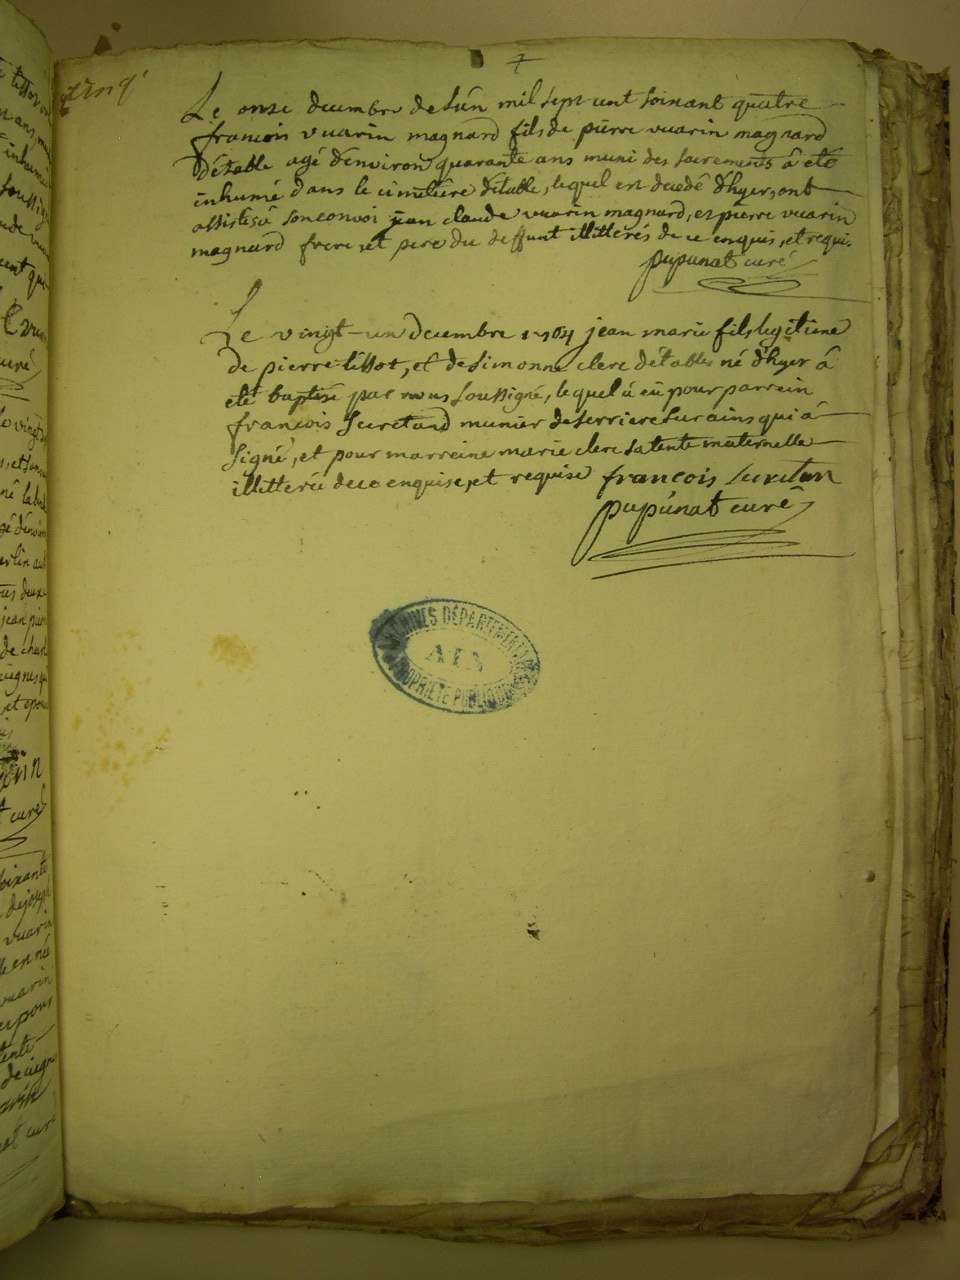 cinq
7
Le onze decembre de l'an mil sept cent soixant quatre
francois vuarin magnard fils de pierre vuarin magnard
détable agé d'environ quarante ans muni des sacrements â eté
inhumé dans le cimetiére d'étable, lequel est decedé d'hyer, ont
assistes â son convoi jean claude vuarin magnard, et pierre vuarin
magnard frere, et pere du deffunt illitterés de ce enquis, et requi.
pupunat curé
Le vingt-un decembre 1764 jean marie fils legitime
de pierre tissot, et de simonne clerc détables né d'hyer â
eté baptisé par nous soussigné, lequel â eû pour parrein
francois secretand munier de serriere sur ains qui â
signé, et pour marreine marie clerc sa tente maternelle
illitterée de ce enquise, et requise francois secretan
pupunat curé
ARCHIVES DÉPARTEMENTALES
AIN
PROPRIÉTÉ PUBLIQUE